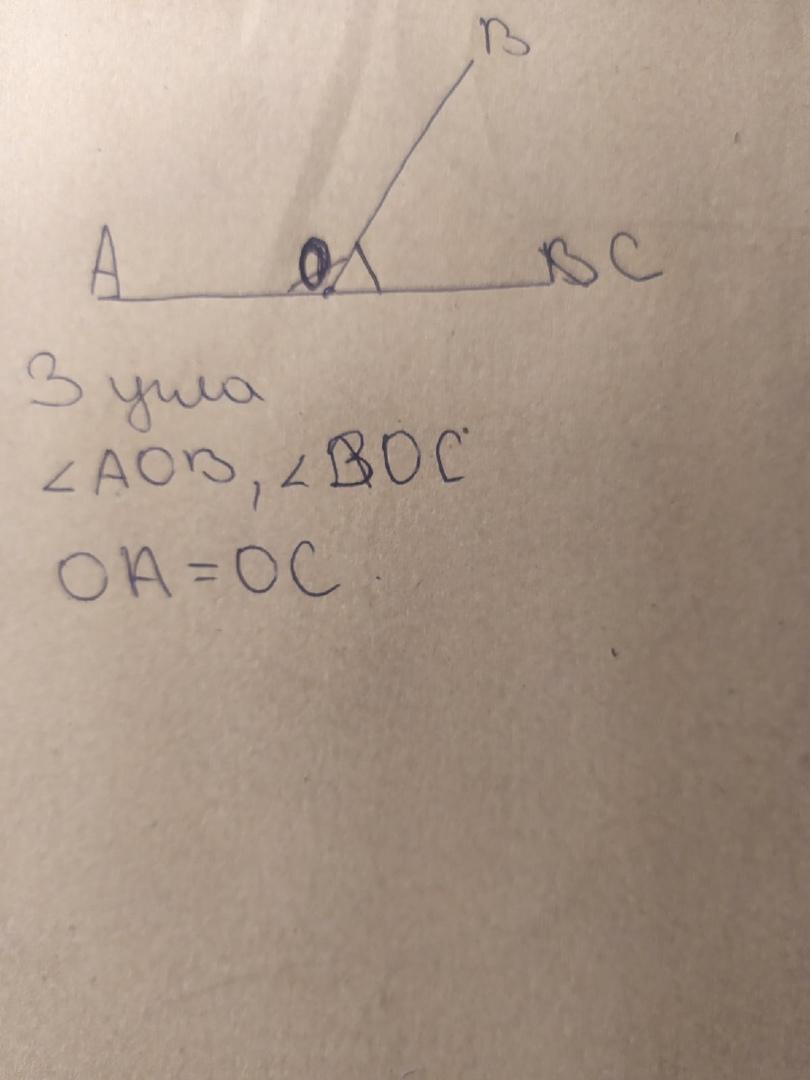 B
A O C
3 угла
∠AOB, ∠BOC
OA = OC